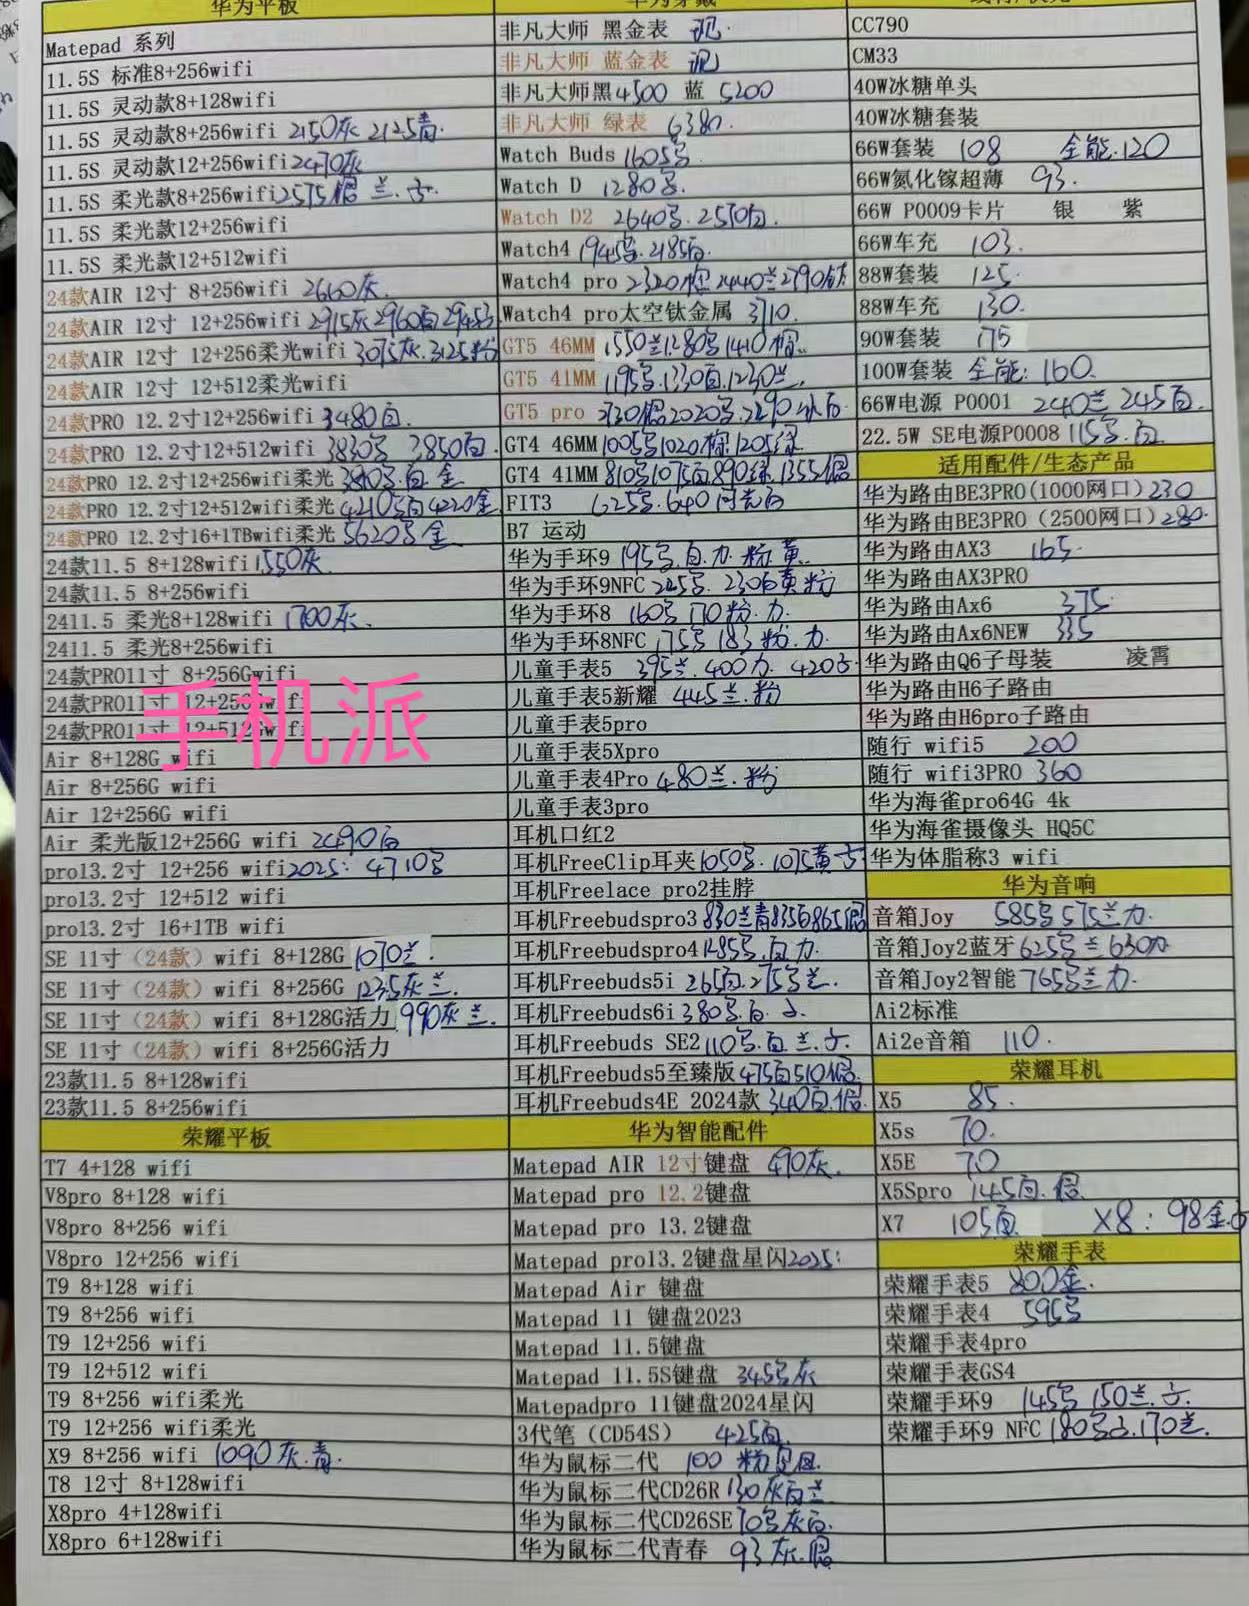 华为平板
Matepad 系列
11.5S 标准8+256wifi
11.5S 灵动款8+128wifi
11.5S 灵动款8+256wifi 2150灰 2125青.
11.5S 灵动款12+256wifi 2470灰
11.5S 柔光款8+256wifi 2575 兰.
11.5S 柔光款12+256wifi
11.5S 柔光款12+512wifi
24款AIR 12寸 8+256wifi 2660灰.
24款AIR 12寸 12+256wifi 2915灰 2960白 2945
24款AIR 12寸 12+256柔光wifi 3075灰.3125粉
24款AIR 12寸 12+512柔光wifi
24款PRO 12.2寸12+256wifi 3480白.
24款PRO 12.2寸12+512wifi 3830 3850白.
24款PRO 12.2寸12+256wifi柔光 白 金
24款PRO 12.2寸12+512wifi柔光 4210 白 4220金
24款PRO 12.2寸16+1TBwifi柔光 5620 金
24款11.5 8+128wifi 1550灰
24款11.5 8+256wifi
2411.5 柔光8+128wifi 1700灰.
2411.5 柔光8+256wifi
24款PRO11寸 8+256Gwifi
24款PRO11寸 12+256wifi
24款PRO11寸 12+512Gwifi
手机派
Air 8+128G wifi
Air 8+256G wifi
Air 12+256G wifi
Air 柔光版12+256G wifi 2490白
pro13.2寸 12+256 wifi 2025: 4710
pro13.2寸 12+512 wifi
pro13.2寸 16+1TB wifi
SE 11寸（24款）wifi 8+128G 1070兰.
SE 11寸（24款）wifi 8+256G 1235灰 兰.
SE 11寸（24款）wifi 8+128G活力 990灰 兰.
SE 11寸（24款）wifi 8+256G活力
23款11.5 8+128wifi
23款11.5 8+256wifi
荣耀平板
T7 4+128 wifi
V8pro 8+128 wifi
V8pro 8+256 wifi
V8pro 12+256 wifi
T9 8+128 wifi
T9 8+256 wifi
T9 12+256 wifi
T9 12+512 wifi
T9 8+256 wifi柔光
T9 12+256 wifi柔光
X9 8+256 wifi 1090灰.青.
T8 12寸 8+128wifi
X8pro 4+128wifi
X8pro 6+128wifi
华为穿戴
非凡大师 黑金表 现.
非凡大师 蓝金表 现
非凡大师黑4500 蓝 5200
非凡大师 绿表 6380.
Watch Buds 1605
Watch D 1280
Watch D2 2640 .2550白.
Watch4 1945 .2185白.
Watch4 pro 2320棕 2440兰 2790钛
Watch4 pro太空钛金属 3710.
GT5 46MM 1550兰1280 1410棕.
GT5 41MM 1195 .1330白.1230兰.
GT5 pro 2020
GT4 46MM 1005 1020棕 1205绿
GT4 41MM 810 1075白 890绿.1355
FIT3 625 .640
B7 运动
华为手环9 195 .白.力.粉.黄.
华为手环9NFC 225 . 230白黄粉
华为手环8 160 170粉.力.
华为手环8NFC 175 183 粉.力
儿童手表5 395兰.400力. 420
儿童手表5新耀 445兰.粉
儿童手表5pro
儿童手表5Xpro
儿童手表4Pro 480兰.粉
儿童手表3pro
耳机口红2
耳机FreeClip耳夹 1050 . 1075黄
耳机Freelace pro2挂脖
耳机Freebudspro3 830兰青835白865
耳机Freebudspro4 1285 .白 力.
耳机Freebuds5i 265白.275 兰.
耳机Freebuds6i 380 白.
耳机Freebuds SE2 110 .白 兰.
耳机Freebuds5至臻版 475白510
耳机Freebuds4E 2024款 340白.
华为智能配件
Matepad AIR 12寸键盘 490灰.
Matepad pro 12.2键盘
Matepad pro 13.2键盘
Matepad pro13.2键盘星闪2025:
Matepad Air 键盘
Matepad 11 键盘2023
Matepad 11.5键盘
Matepad 11.5S键盘 345 灰
Matepadpro 11键盘2024星闪
3代笔（CD54S） 425白.
华为鼠标二代 100 粉
华为鼠标二代CD26R 130灰白兰
华为鼠标二代CD26SE 70 灰白.
华为鼠标二代青春 93灰.
CC790
CM33
40W冰糖单头
40W冰糖套装
66W套装 108 全能.120
66W氮化镓超薄 93.
66W P0009卡片 银 紫
66W车充 103.
88W套装 125.
88W车充 130.
90W套装 175
100W套装 全能: 160.
66W电源 P0001 240兰 245白.
22.5W SE电源P0008 115 .白
适用配件/生态产品
华为路由BE3PRO(1000网口) 230
华为路由BE3PRO（2500网口) 280.
华为路由AX3 165.
华为路由AX3PRO
华为路由Ax6 375.
华为路由Ax6NEW 335
华为路由Q6子母装 凌霄
华为路由H6子路由
华为路由H6pro子路由
随行 wifi5 200
随行 wifi3PRO 360
华为海雀pro64G 4k
华为海雀摄像头 HQ5C
华为体脂称3 wifi
华为音响
音箱Joy 585 575兰力.
音箱Joy2蓝牙 625 兰630力
音箱Joy2智能 765 兰力.
Ai2标准
Ai2e音箱 110.
荣耀耳机
X5 85.
X5s 70.
X5E 70
X5Spro 145白.
X7 105白 X8: 98金.
荣耀手表
荣耀手表5 800金.
荣耀手表4 595
荣耀手表4pro
荣耀手表GS4
荣耀手环9 145 150兰.
荣耀手环9 NFC 180 .170兰.